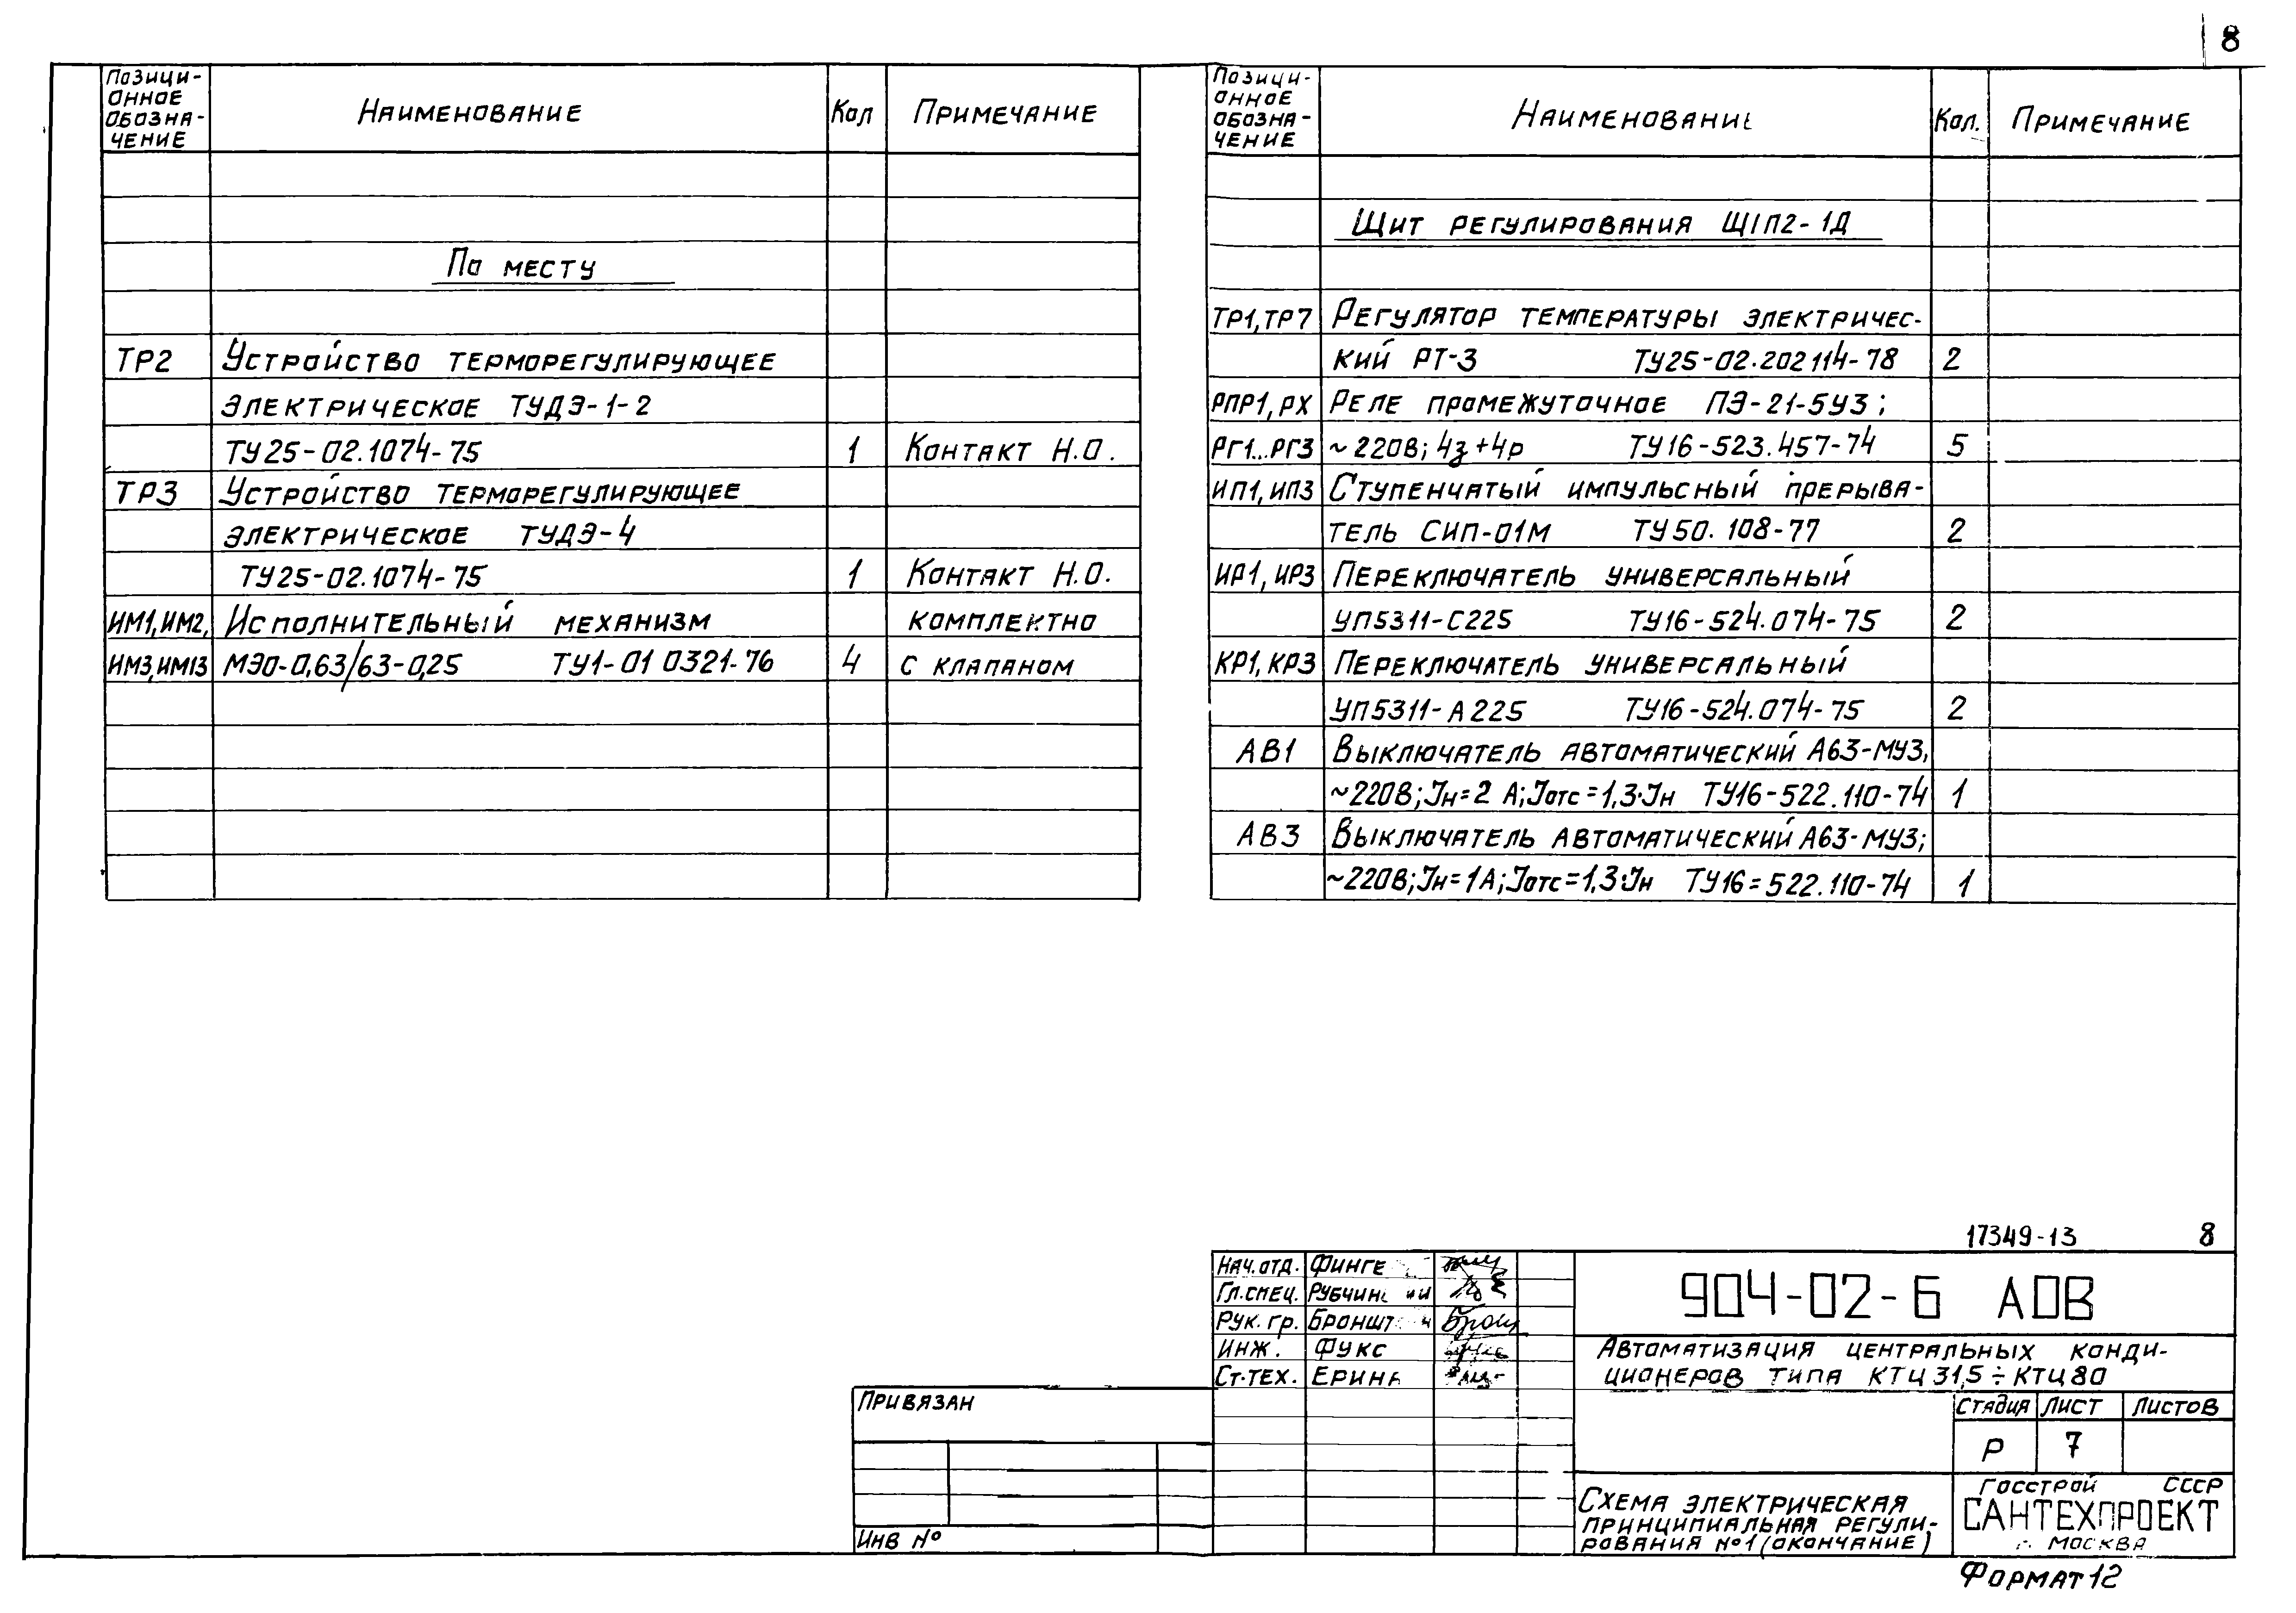 8
Позици-
онное
обозна-
чение
Наименование
Кол
Примечание
По месту
ТР2 Устройство терморегулирующее
электрическое ТУДЭ-1-2
ТУ25-02.1074-75 1 Контакт Н.О.
ТР3 Устройство терморегулирующее
электрическое ТУДЭ-4
ТУ25-02.1074-75 1 Контакт Н.О.
ИМ1,ИМ2, Исполнительный механизм комплектно
ИМ3,ИМ13 МЭО-0,63/63-0,25 ТУ1-01 0321-76 4 с клапаном
Позици-
онное
обозна-
чение
Наименование
Кол.
Примечание
Щит регулирования Щ1П2-1Д
ТР1,ТР7 Регулятор температуры электричес-
кий РТ-3 ТУ25-02.202114-78 2
РПР1,РХ Реле промежуточное ПЭ-21-5У3;
РГ1...РГ3 ~220В; 4з+4р ТУ16-523.457-74 5
ИП1,ИП3 Ступенчатый импульсный прерыва-
тель СИП-01М ТУ50.108-77 2
ИР1,ИР3 Переключатель универсальный
УП5311-С225 ТУ16-524.074-75 2
КР1,КР3 Переключатель универсальный
УП5311-А225 ТУ16-524.074-75 2
АВ1 Выключатель автоматический А63-МУ3,
~220В; Iн=2 А; Iотс=1,3·Iн ТУ16-522.110-74 1
АВ3 Выключатель автоматический А63-МУ3;
~220В; Iн=1А; Iотс=1,3·Iн ТУ16=522.110-74 1
17349-13 8
Нач.отд. Финге
Гл.спец.
Рук.гр.
Инж. Фукс
Ст.тех. Ерина
904-02-6 АОВ
Автоматизация центральных конди-
ционеров типа КТЦ31,5÷КТЦ80
Стадия Лист Листов
Р 7
Схема электрическая
принципиальная регули-
рования №1 (окончание)
Госстрой СССР
САНТЕХПРОЕКТ
г. Москва
Привязан
Инв №
Формат 12